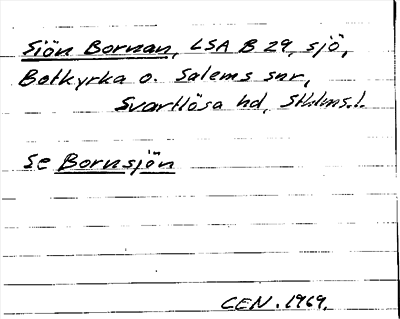 Siön Bornan, LSA B 29, sjö,
Botkyrka o. Salems snr,
Svartlösa hd, Sthlms. l.
Se Bornsjön
CEN. 1969.